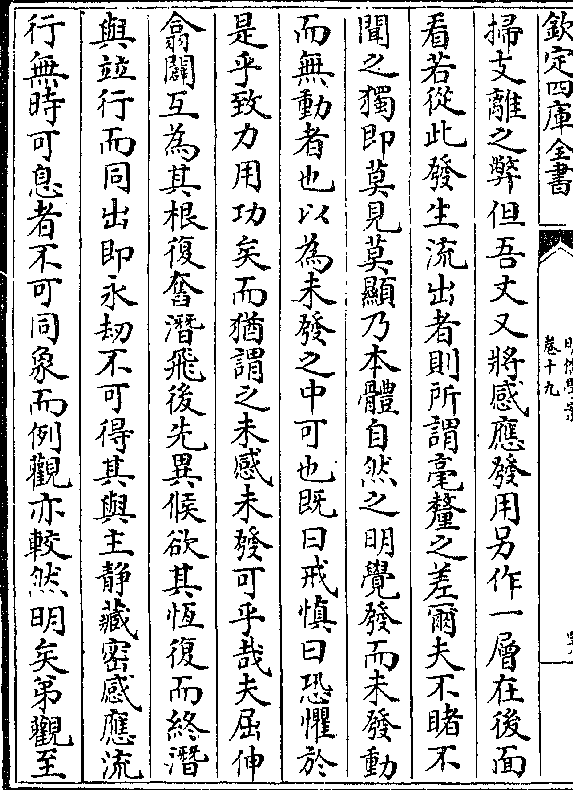 欽定四庫全書
明儒學案
卷十九
掃支離之弊但吾丈又將感應發用另作一層在後面
看若從此發生流出者則所謂毫釐之差爾夫不睹不
聞之獨即莫見莫顯乃本體自然之明覺發而未發動
而無動者也以為未發之中可也既曰戒慎曰恐懼於
是乎致力用功矣而猶謂之未感未發可乎哉夫屈伸
翕闢互為其根復奮潛飛後先異候欲其恆復而終潛
與並行而同出即永劫不可得其與主靜藏密感應流
行無時可息者不可同象而例觀亦較然明矣第觀至